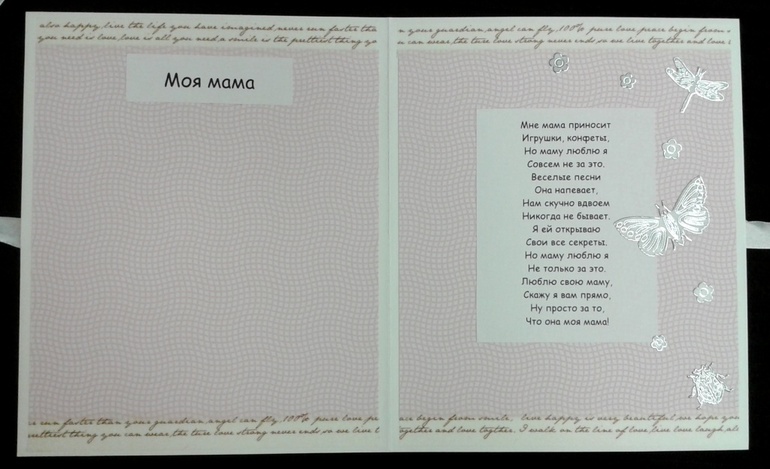 also happy, live the life you have imagined, never run faster tha
you need is love, love is all you need, a smile is the prettiest thing yo
Моя мама
re run faster than your guardian, angel can fly, 100% pure love, pe
rettiest thing you can wear, the ture love strong never ends so we live t
n your guardian, angel can fly, 100% pure love, peace begin from s
u can wear, the ture love strong never ends, so we live together and love t
Мне мама приносит
Игрушки, конфеты,
Но маму люблю я
Совсем не за это.
Веселые песни
Она напевает,
Нам скучно вдвоем
Никогда не бывает.
Я ей открываю
Свои все секреты.
Но маму люблю я
Не только за это.
Люблю свою маму,
Скажу я вам прямо,
Ну просто за то,
Что она моя мама!
ace begin from smile. live happy is very beautiful we hope you
together and love togther. I walk on the line of love, live love laugh, als